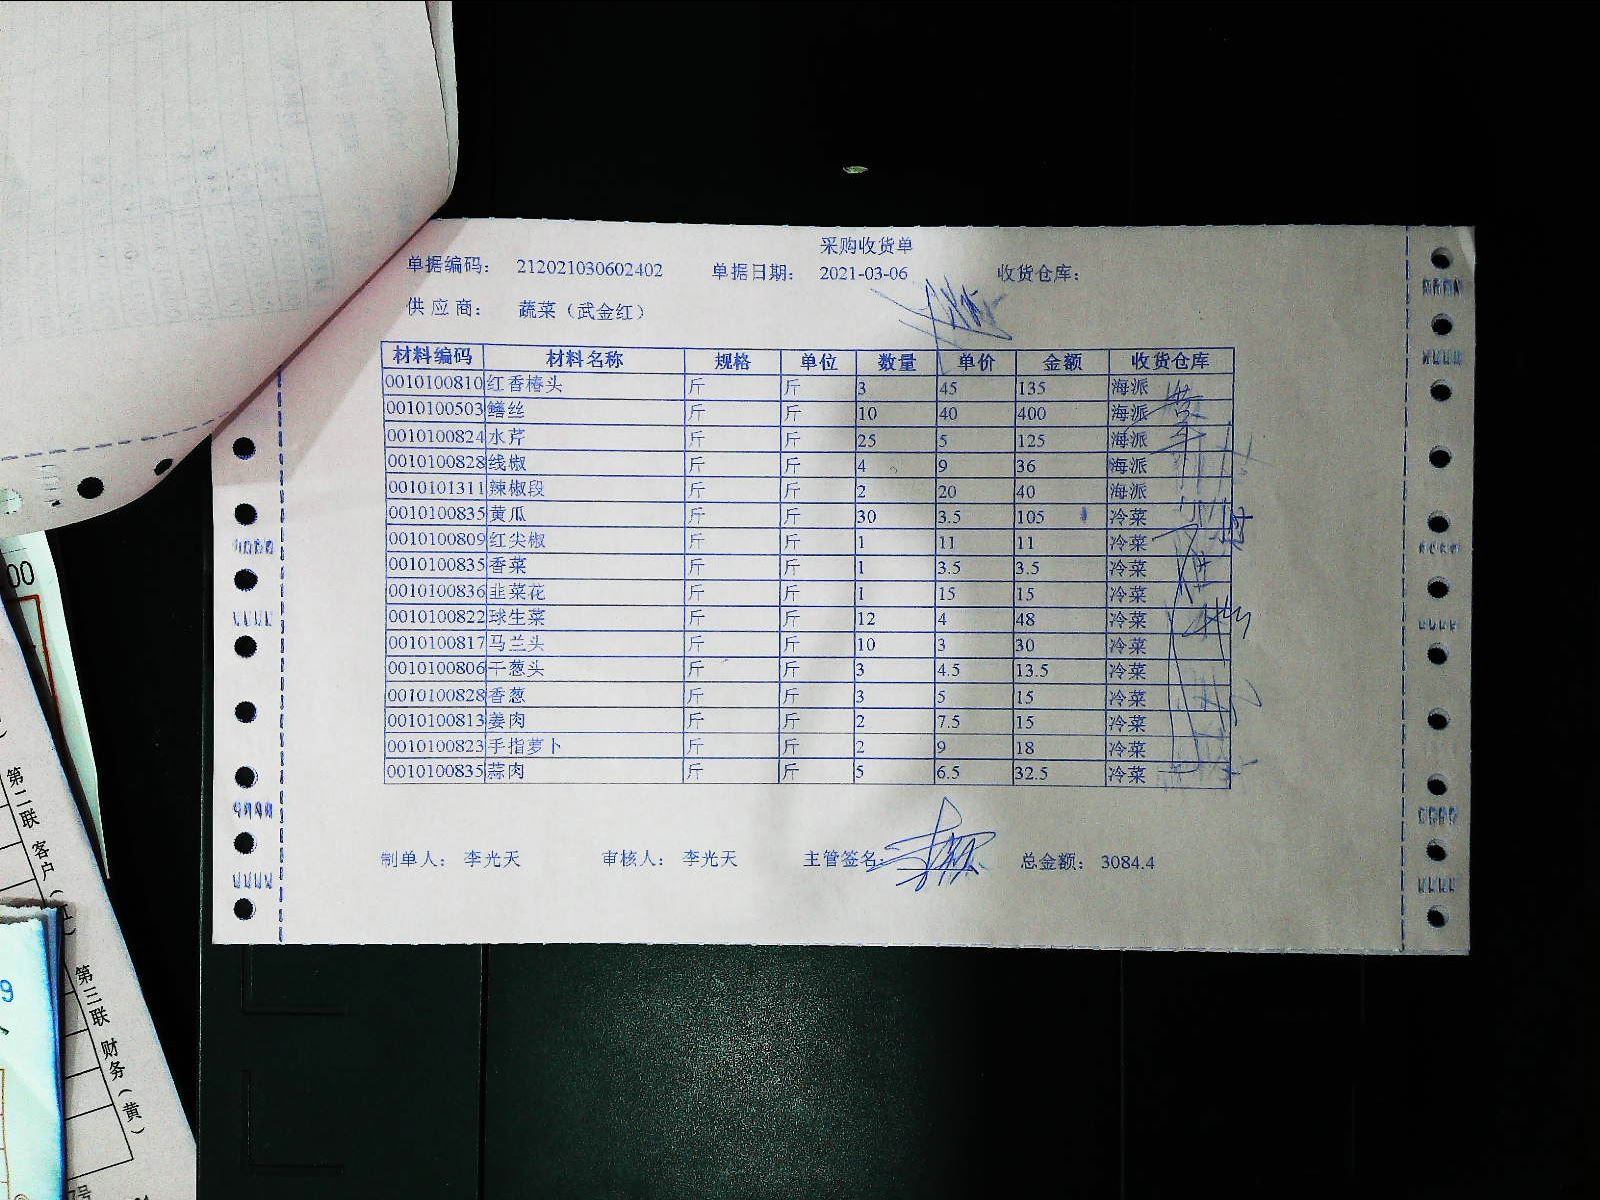 采购收货单
单据编码： 212021030602402 单据日期： 2021-03-06 收货仓库：
供 应 商： 蔬菜（武金红）
材料编码 材料名称 规格 单位 数量 单价 金额 收货仓库
0010100810 红香椿头 斤 斤 3 45 135 海派
0010100503 鳝丝 斤 斤 10 40 400 海派
0010100824 水芹 斤 斤 25 5 125 海派
0010100828 线椒 斤 斤 4 9 36 海派
0010101311 辣椒段 斤 斤 2 20 40 海派
0010100835 黄瓜 斤 斤 30 3.5 105 冷菜
0010100809 红尖椒 斤 斤 1 11 11 冷菜
0010100835 香菜 斤 斤 1 3.5 3.5 冷菜
0010100836 韭菜花 斤 斤 1 15 15 冷菜
0010100822 球生菜 斤 斤 12 4 48 冷菜
0010100817 马兰头 斤 斤 10 3 30 冷菜
0010100806 干葱头 斤 斤 3 4.5 13.5 冷菜
0010100828 香葱 斤 斤 3 5 15 冷菜
0010100813 姜肉 斤 斤 2 7.5 15 冷菜
0010100823 手指萝卜 斤 斤 2 9 18 冷菜
0010100835 蒜肉 斤 斤 5 6.5 32.5 冷菜
制单人： 李光天 审核人： 李光天 主管签名： 总金额： 3084.4
00
第二联 客户（红）
第三联 财务（黄）
9